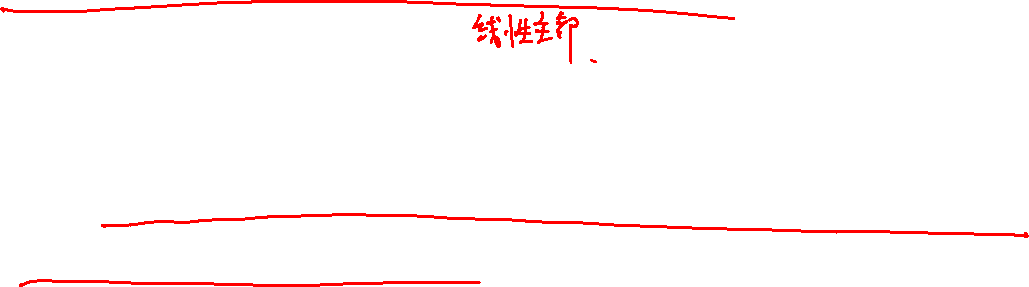 线性主部